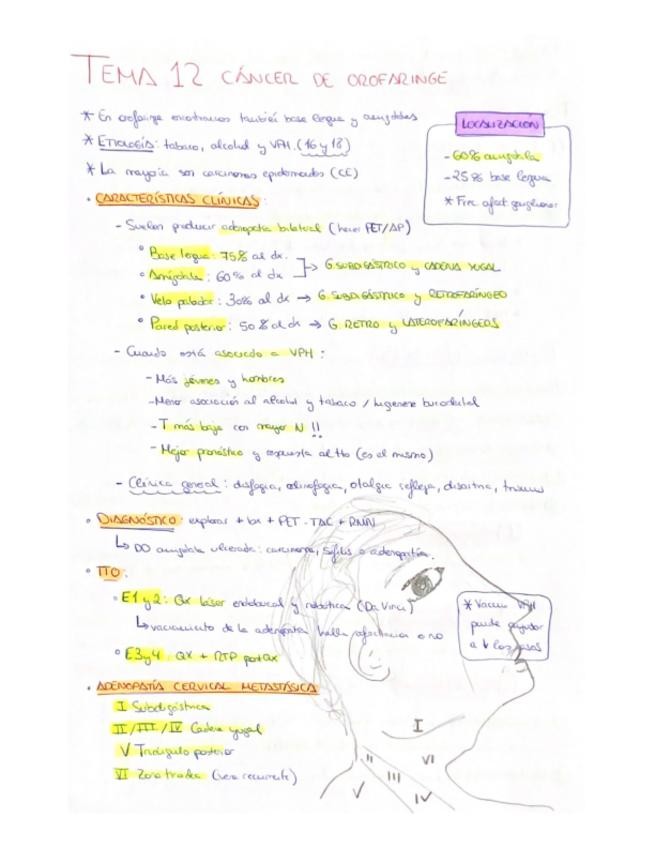 TEMA 12 CÁNCER DE OROFARINGE
* En orofaringe encontramos también base lengua y amígdalas
* ETIOLOGÍA: tabaco, alcohol y VPH. (16 y 18)
* La mayoría son carcinomas epidermoides (CE)
LOCALIZACIÓN
- 60% amígdala
- 25% base lengua
* Frec afect ganglionar
• CARACTERÍSTICAS CLÍNICAS:
- Suelen producir adenopatía bilateral (hacer PET/AP)
• Base lengua: 75% al dx.
• Amígdala: 60% al dx
→ G. SUBDIGÁSTRICO y CADENA YUGAL
• Velo paladar: 30% al dx → G. SUBDIGÁSTRICO y RETROFARÍNGEO
• Pared posterior: 50% al dx → G. RETRO y LATEROFARÍNGEOS
- Cuando está asociado a VPH:
- Más jóvenes y hombres
- Menor asociación al alcohol y tabaco / higiene bucodental
- T más bajo con mayor N !!
- Mejor pronóstico y respuesta al tto (es el mismo)
- Clínica general: disfagia, odinofagia, otalgia refleja, disartria, trismus
• DIAGNÓSTICO: explorar + bx + PET-TAC + RMN
↳ DD amígdala ulcerada: carcinoma, sífilis o adenopatía.
• TTO:
• E1 y 2: Qx láser endobucal y robótica (Da Vinci)
↳ vaciamiento de la adenopatía halla afectación o no
• E3 y 4: QX + RTP postQx
* Vacuna VPH
puede ayudar
a ↓ los casos
• ADENOPATÍA CERVICAL METASTÁSICA
I Subdigástrica
II / III / IV Cadena yugal
V Triángulo posterior
VI Zona tráquea (vena recurrente)
I
II
III
VI
V
IV